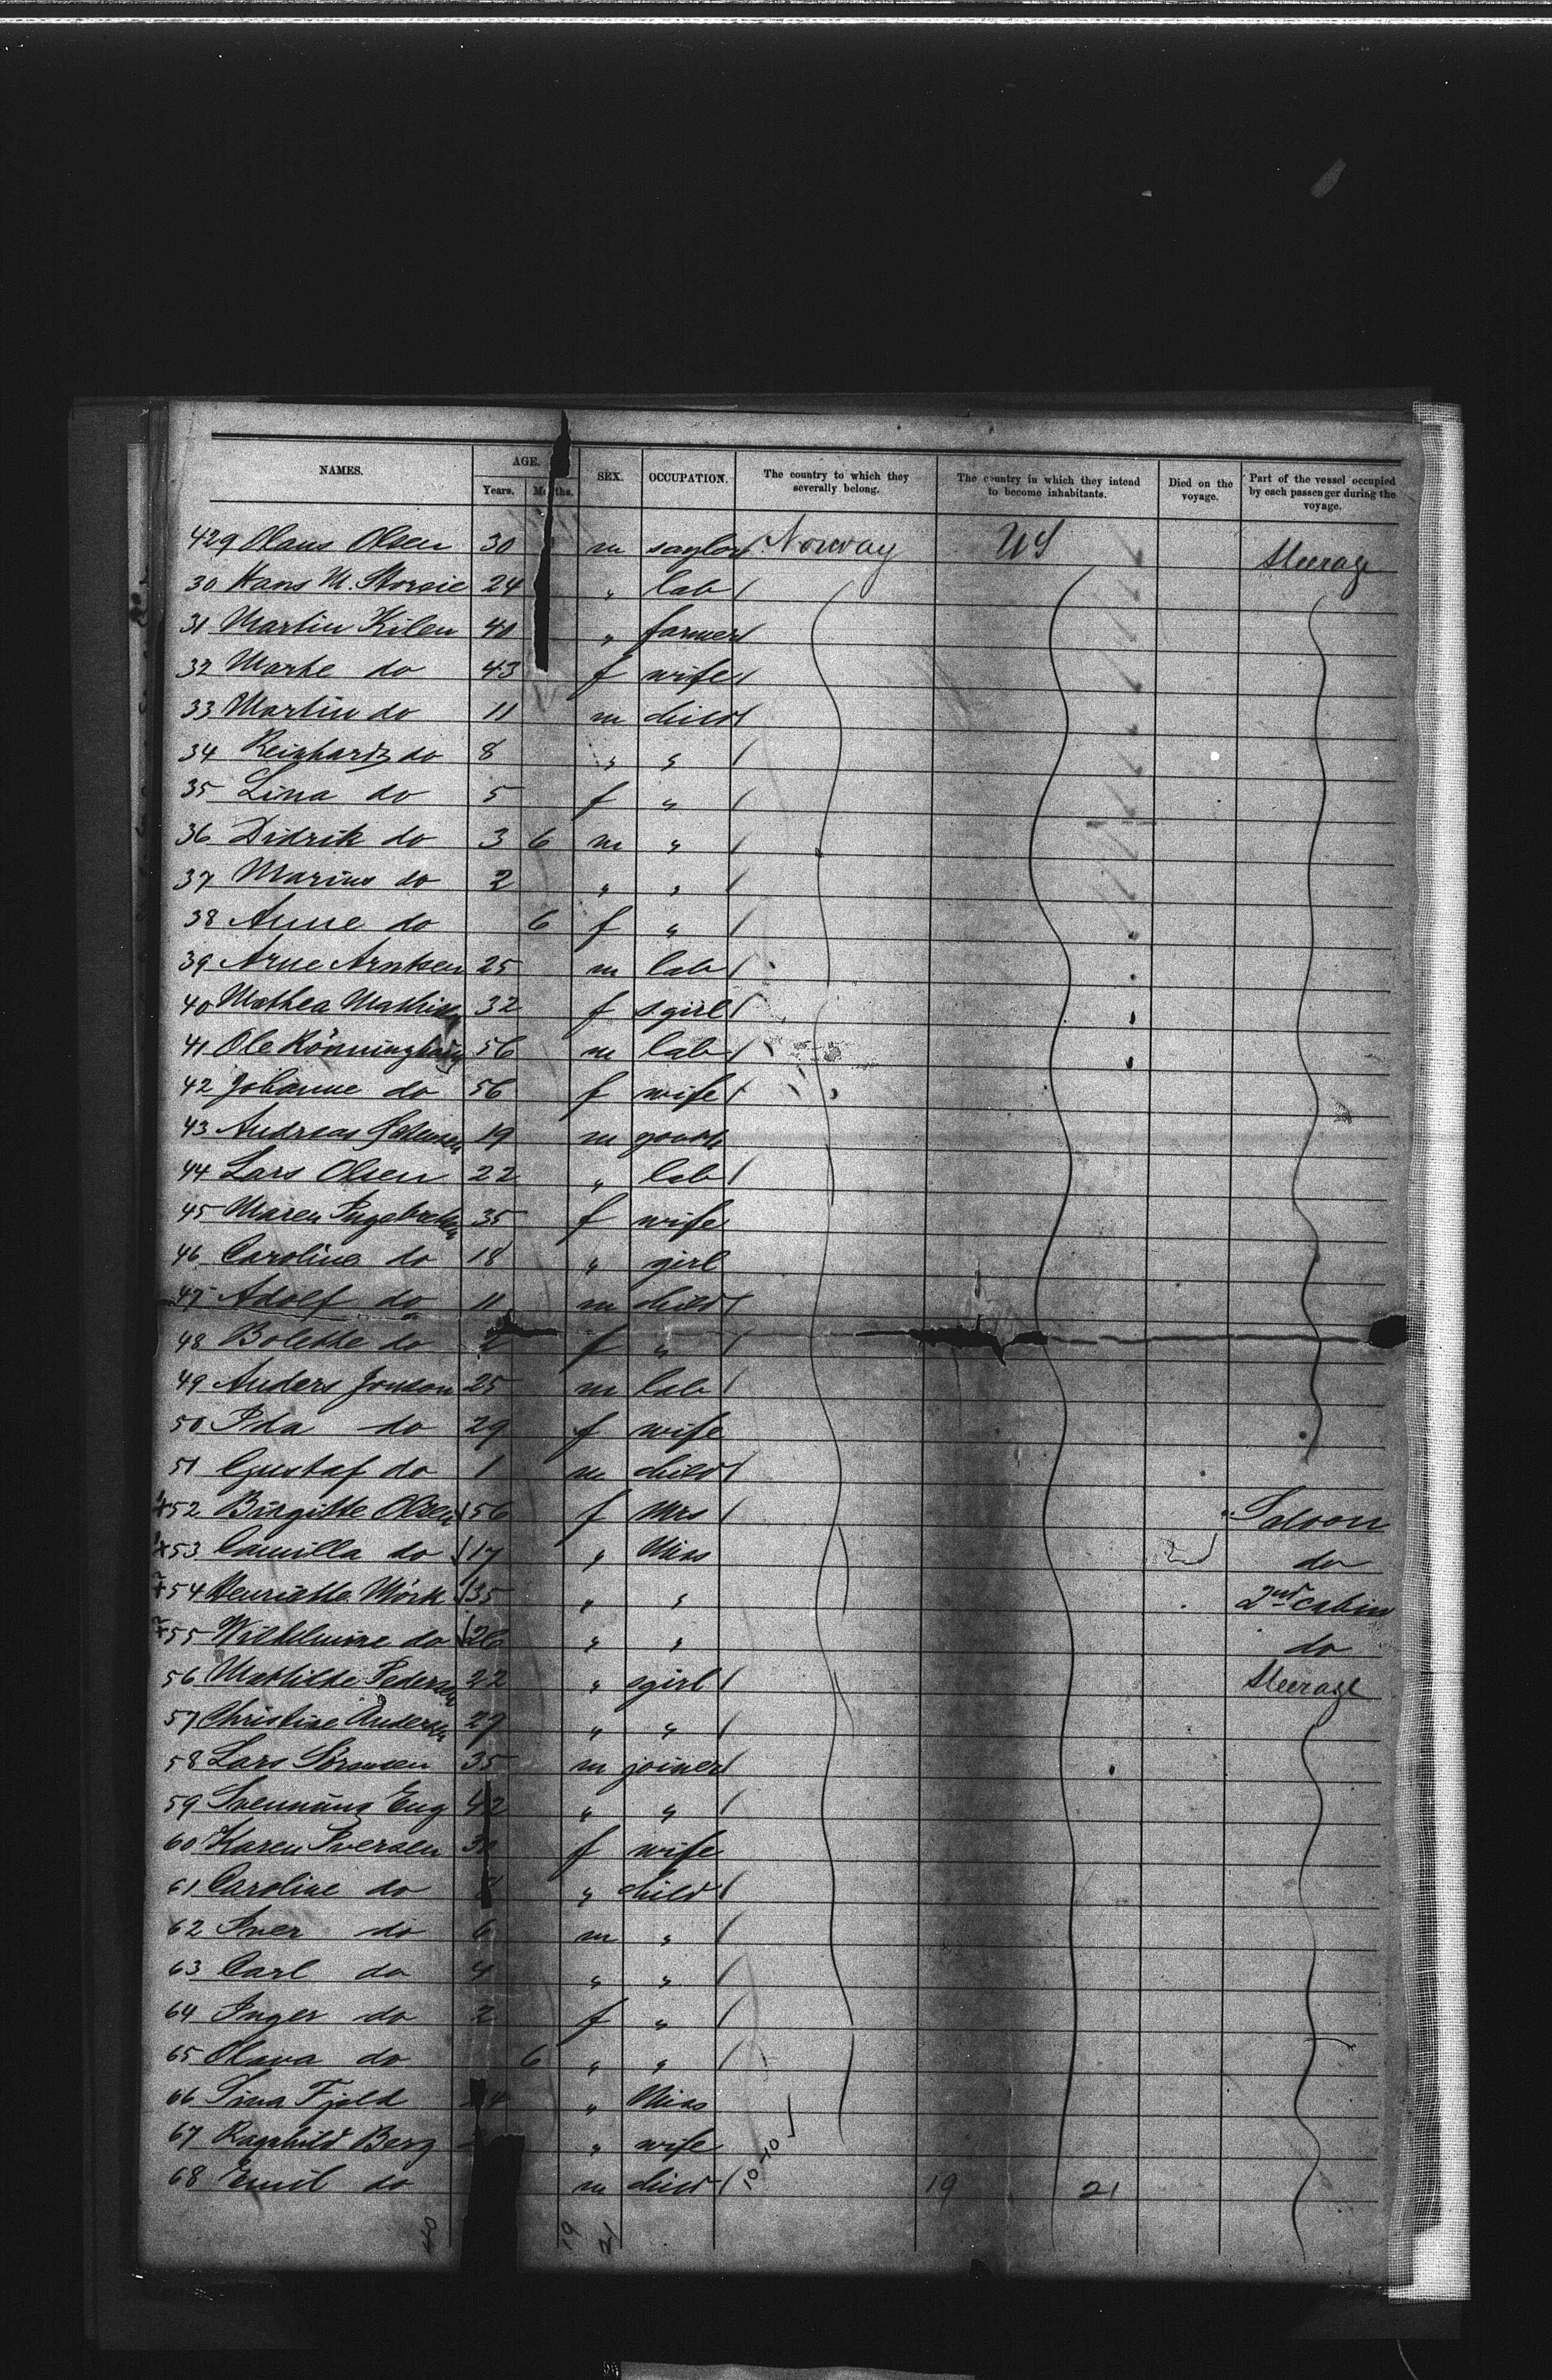 NAMES. AGE. SEX. OCCUPATION. The country to which they severally belong. The country in which they intend to become inhabitants. Died on the voyage. Part of the vessel occupied by each passenger during the voyage.
Years. Mths.
429 Olaus Olsen 30 m saylor Norway US Steerage
30 Hans M. 24 " lab
31 Martin Kilen 41 " farmer
32 Marthe do 43 f wife
33 Martin do 11 m child
34 Reinhardt do 8 " "
35 Lina do 5 f "
36 Didrik do 3 6 m "
37 Marius do 2 " "
38 Anne do 6 f "
39 Arne Arntsen 25 m lab
40 Mathea Mathisen 32 f s.girl
41 Ole 56 m lab
42 Johanne do 56 f wife
43 Andreas 19 m
44 Lars Olsen 22 " lab
45 Maren Ingebretsen 35 f wife
46 Caroline do 18 " girl
47 Adolf do 11 m child
48 Bolethe do f "
49 Anders Jonson 25 m lab
50 Ida do 29 f wife
51 Gustaf do 1 m child
52 Birgitte Olsen 56 f Mrs Saloon
53 Camilla do 17 " Miss do
54 Henriette Mörk 35 " " 2nd cabin
55 Wilhelmine do 26 " " do
56 Mathilde Pedersen 22 " sgirl Steerage
57 Christine Andersen 27 " "
58 Lars Sörensen 35 m joiner
59 Svennung Eng 42 " "
60 Karen Iversen 3 f wife
61 Caroline do 8 " child
62 Iver do 6 m "
63 Carl do 4 " "
64 Inger do 2 f "
65 Olava do 6 " "
66 Lina Fjeld 4 " Miss
67 Ragnhild Berg " wife
68 Emil do m child 10-10 19 21
40 19 21